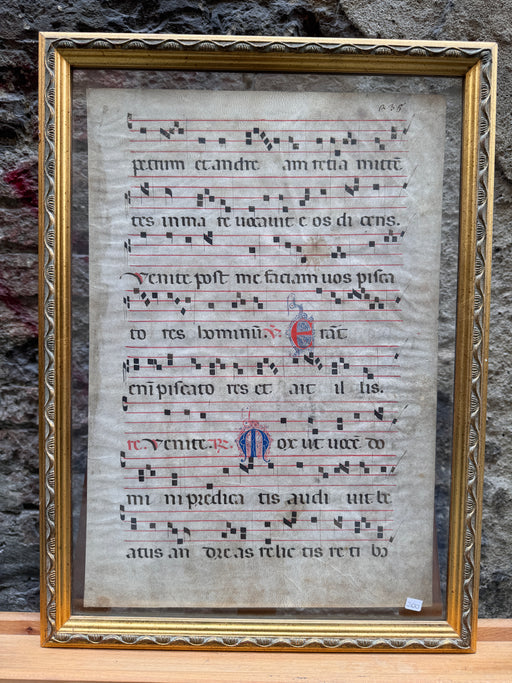 petrum et andre am retia mittē
tes in ma re vocavit e os di cens.
Venite post me faciam vos pisca
to res hominū. ℣. Erāt
enī piscato res et ait il lis.
re. Venite. ℟. Mox ut vocē do
mi ni predica tis audi vit be
atus an dre as relic tis re ti b
200